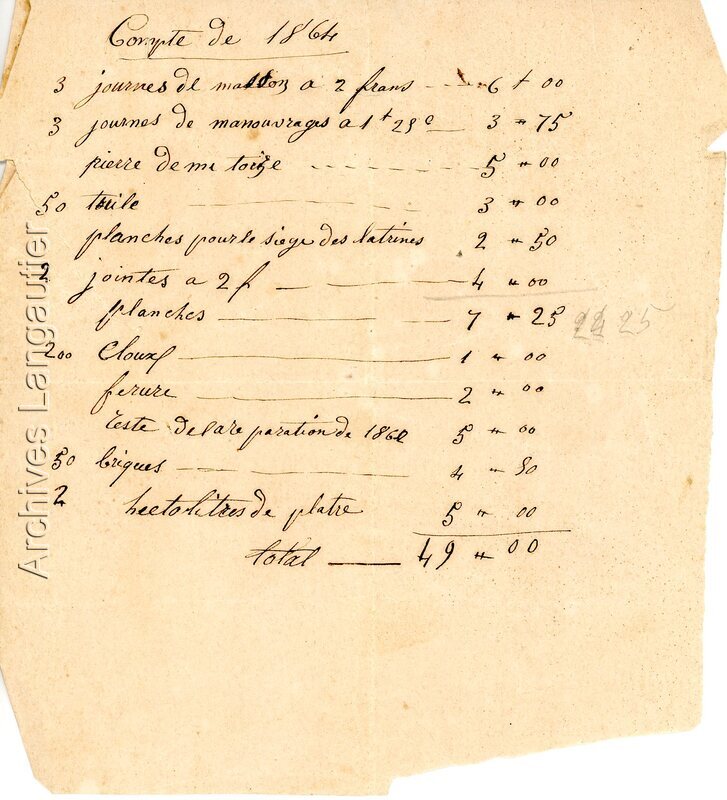 Compte de 1864
3 journes de masson a 2 frans 6 f 00
3 journes de manouvrages a 1 f 25 c 3 " 75
pierre demi toize 5 " 00
50 tuile 3 " 00
planches pour le siege des latrines 2 " 50
2 jointes a 2 f 4 " 00
planches 7 " 25 24 25
200 Cloux 1 " 00
ferure 2 " 00
reste de la re paration de 1862 5 " 00
50 briques 4 " 50
2 hectolitres de platre 5 " 00
total 49 " 00
Archives Langautier